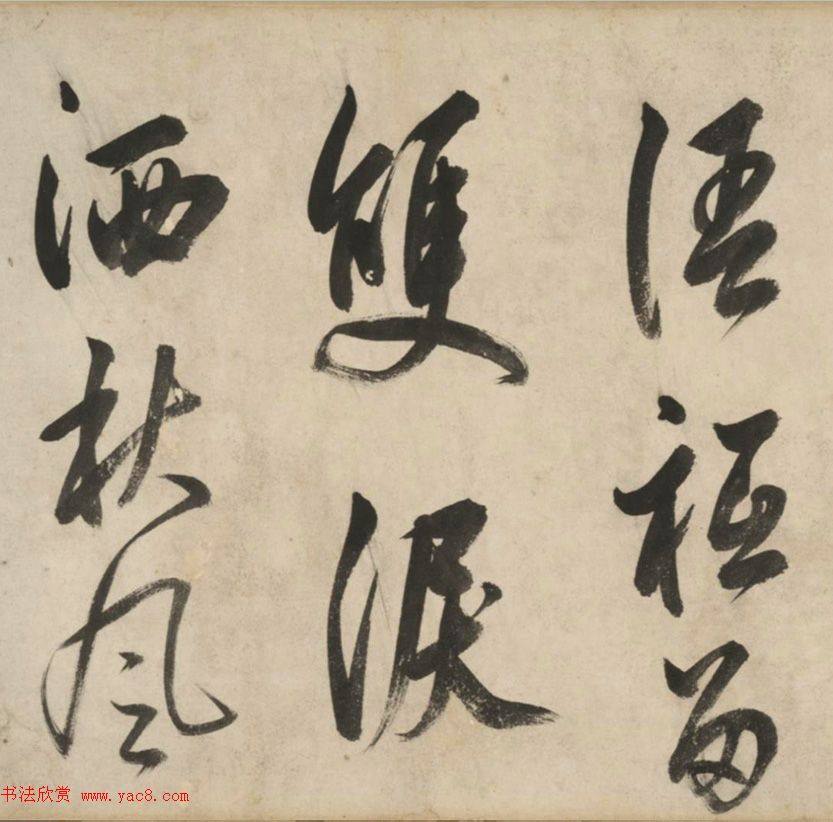 語祗留
雙淚
洒秋風
书法欣赏 www.yac8.com